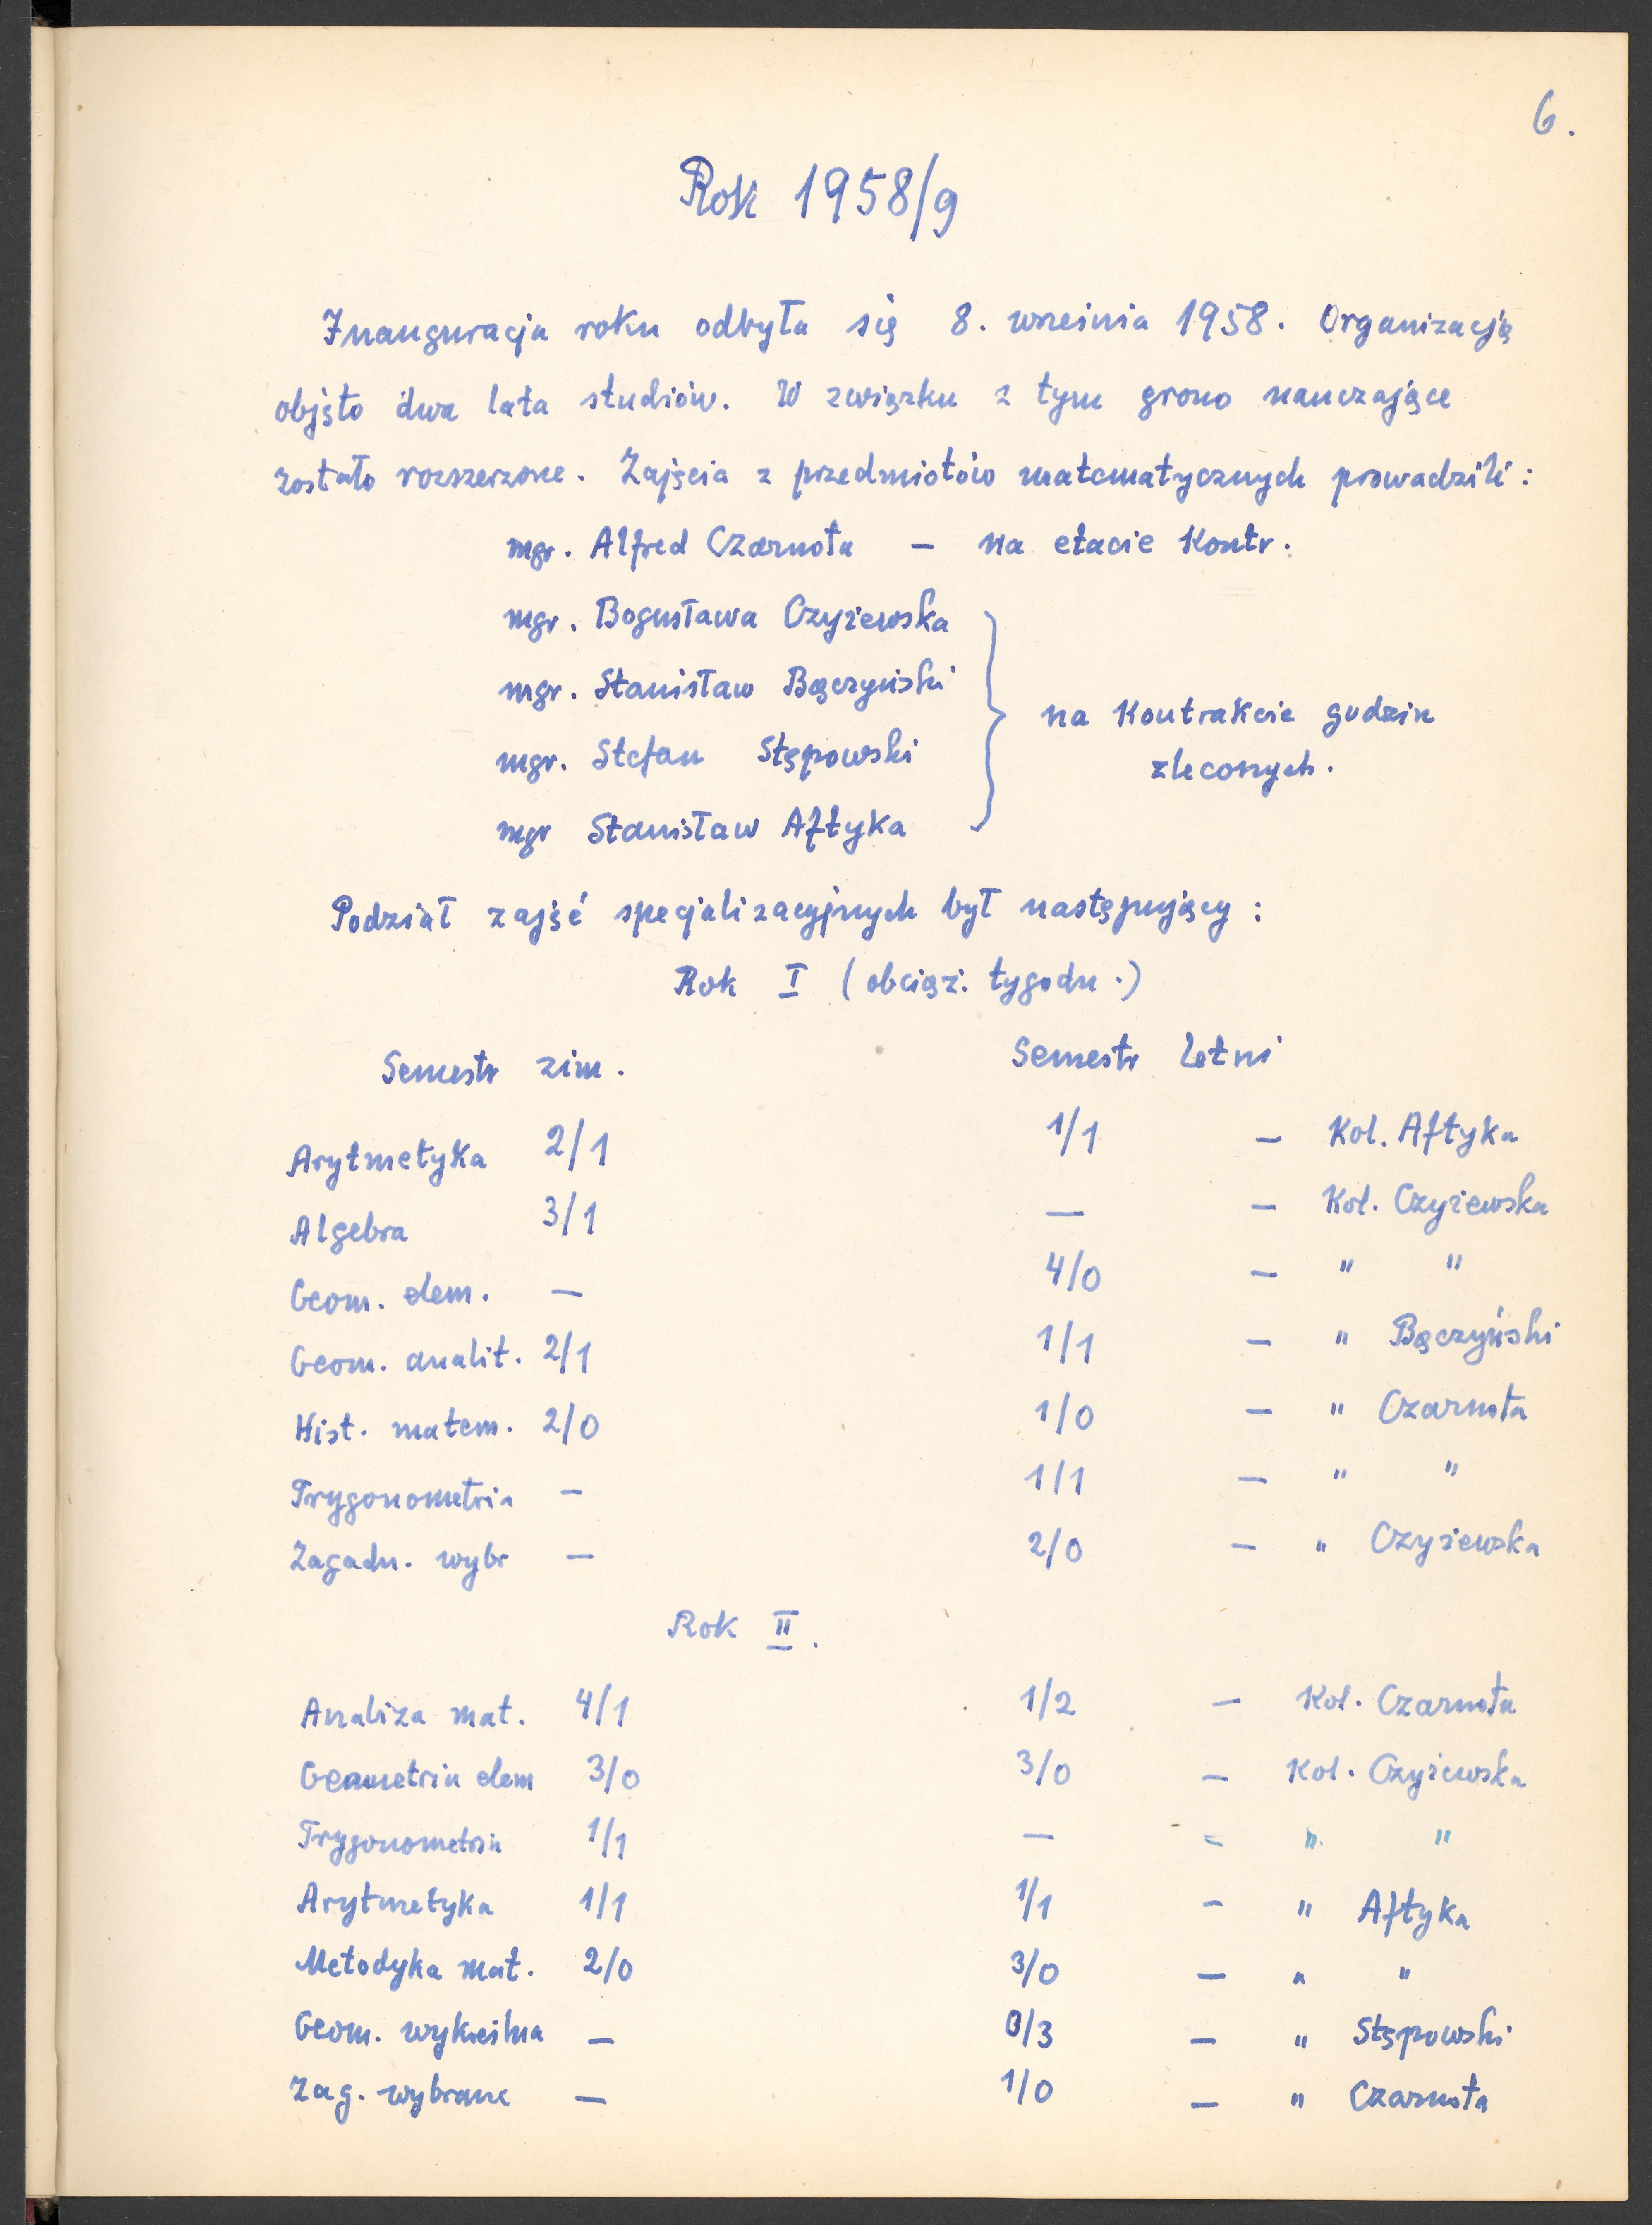 6.
Rok 1958/9
Inauguracja roku odbyła się 8. września 1958. Organizacją
objęto dwa lata studiów. W związku z tym grono nauczające
zostało rozszerzone. Zajęcia z przedmiotów matematycznych prowadzili:
mgr. Alfred Czarnota — na etacie Kontr.
mgr. Bogusława Czyżewska
mgr. Stanisław Bączyński
mgr. Stefan Stępowski
mgr Stanisław Aftyka
na Kontrakcie godzin
zleconych.
Podział zajęć specjalizacyjnych był następujący:
Rok I (obciąż. tygodn.)
Semestr zim. Semestr letni
Arytmetyka 2/1 1/1 — Kol. Aftyka
Algebra 3/1 — — Kol. Czyżewska
Geom. elem. — 4/0 — " "
Geom. analit. 2/1 1/1 — " Bączyński
Hist. matem. 2/0 1/0 — " Czarnota
Trygonometria — 1/1 — " "
Zagadn. wybr — 2/0 — " Czyżewska
Rok II.
Analiza mat. 4/1 1/2 — Kol. Czarnota
Geometria elem 3/0 3/0 — Kol. Czyżewska
Trygonometria 1/1 — — " "
Arytmetyka 1/1 1/1 — " Aftyka
Metodyka mat. 2/0 3/0 — " "
Geom. wykreślna — 0/3 — " Stępowski
Zag. wybrane — 1/0 — " Czarnota